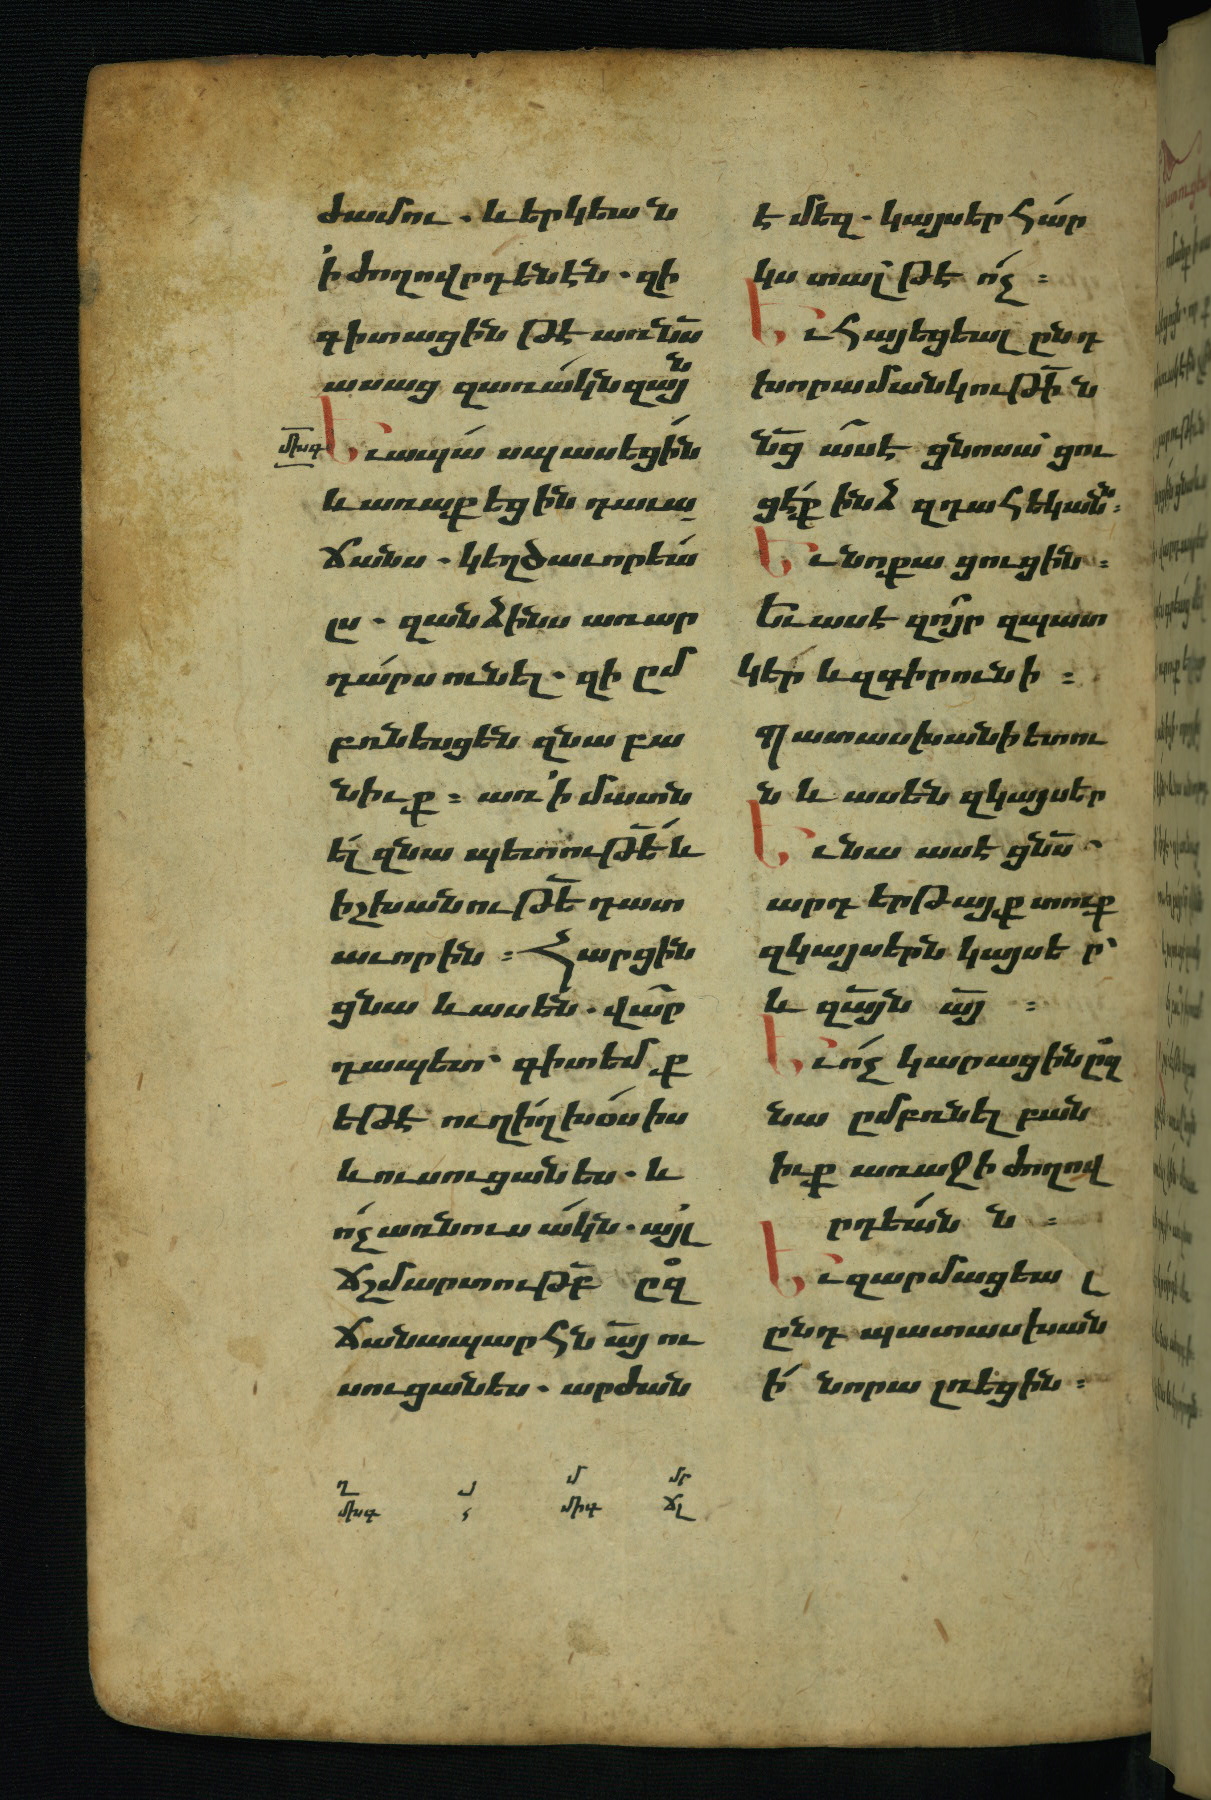 ժամու. և երկեան
ի ժողովրդենէն. զի
գիտացին թէ առ նս
ասաց զառակն զայն
մխգ Եւ ապա սպասեցին
և առաքեցին դաւա
ճանս. կեղծաւորեա
լս. զանձինս առար
դարս ունել. զի ըմ
բռնեսցեն զնա բա
նիւք : առ ի մատն
ել զնա պետութե և
իշխանութե դատ
աւորին : Հարցին
ցնա և ասեն. վար
դապետ՝ գիտեմք
եթէ ուղիղ խօսիս
և ուսուցանես. և
ոչ առնուս ակն. այլ
ճշմարտութբ ըզ
ճանապարհն այ ու
սուցանես. արժան
է մեզ. կայսեր հար
կս տալ թէ ոչ :
Եւ հայեցեալ ընդ
խորամանկութի ն
նց ասէ ցնոսա՝ ցու
ցէք ինձ զդահեկանն :
Եւ նոքա ցուցին :
Եւ ասէ զոյր զպատ
կեր և զգիր ունի :
Պատասխանի ետու
ն և ասեն զկայսեր
Եւ նա ասէ ցնս՝
արդ երթայք տուք
զկայսերն կայսե ր՝
և զայն այ :
Եւ ոչ կարացին ըզ
նա ըմբռնել բան
իւք առաջի ժողով
րդեան ն :
Եւ զարմացեա լ
ընդ պատասխան
ի նորա լռեցին :
ղ մ մր
մխգ միգ ճլ